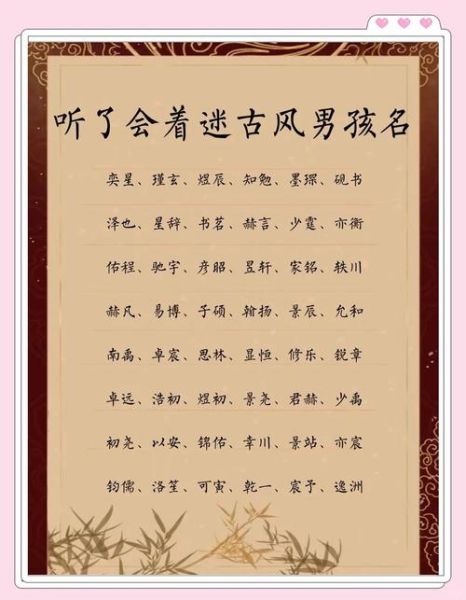 听了会着迷古风男孩名
奕星、瑾玄、煜辰、知勉、墨琛、砚书
泽也、星辞、书茗、赫言、少霆、亦衡
佑程、驰宇、彦昭、昱轩、家铭、轶川
赫凡、易博、子硕、翰扬、景辰、允和
南禹、卓宸、思林、显恒、修乐、锐章
卓远、浩初、煜初、景尧、君赫、少禹
初尧、以安、锦佑、幸川、景站、亦宸
钧儒、洛笙、可寅、乾一、宸予、逸洲